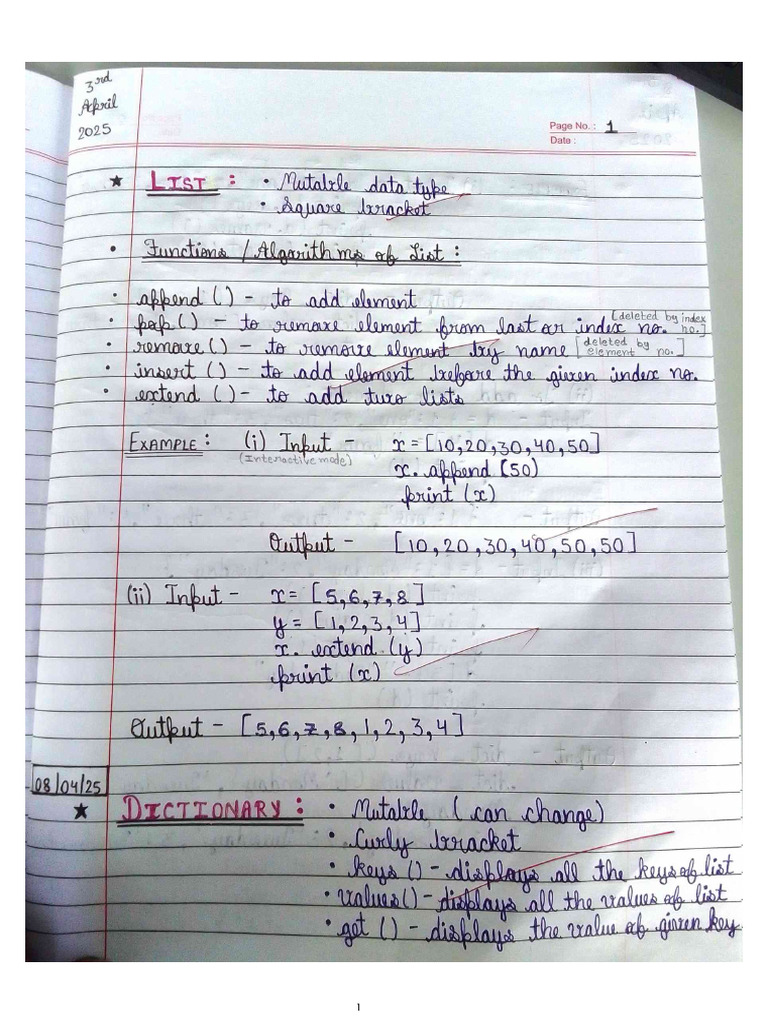 3rd
April
2025
Page No.: 1
Date :
★ LIST : • Mutable data type
• Square bracket
• Functions / Algorithms of List :
• append () - to add element
• pop () - to remove element from last or index no. [deleted by index no.]
• remove () - to remove element by name [deleted by element no.]
• insert () - to add element before the given index no.
• extend () - to add two lists
EXAMPLE : (i) Input - x = [10,20,30,40,50]
(Interactive mode)
x. append (50)
print (x)
Output - [10,20,30,40,50,50]
(ii) Input - x = [5,6,7,8]
y = [1,2,3,4]
x. extend (y)
print (x)
Output - [5,6,7,8,1,2,3,4]
08/04/25
★ DICTIONARY : • Mutable (can change)
• Curly bracket
• keys () - displays all the keys of list
• values () - displays all the values of list
• get () - displays the value of given key
1